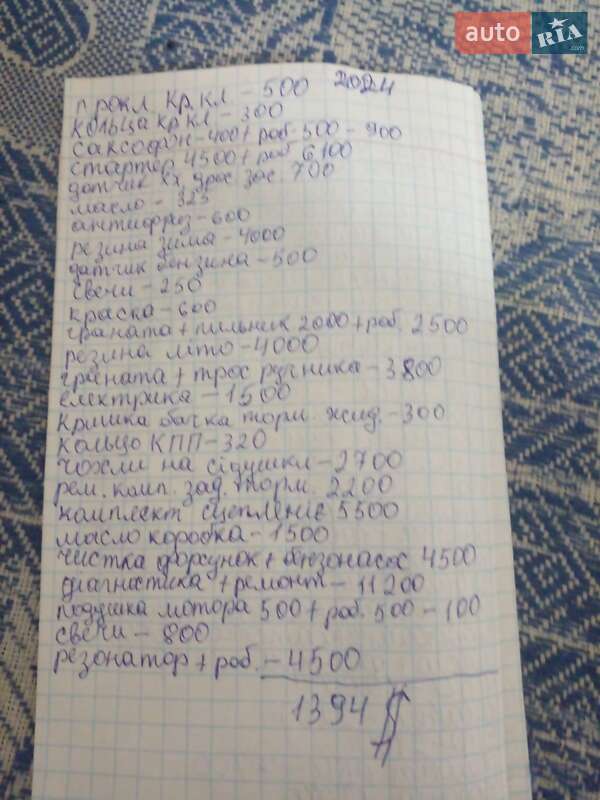 auto RIA .com
2024
прокл. кр. кл. - 500
кольца кр кл. - 300
саксофон - 400 + роб. 500 - 900
стартер 4500 + роб. 6100
датчик хх, дрос. зас. 700
масло - 325
антифриз - 600
резина зима - 4000
датчик бензина - 500
свечи - 250
краска - 600
граната + пильник 2000 + роб. 2500
резина літо - 4000
граната + трос ручника - 3800
електрика - 1500
кришка бачка торм. жид. - 300
кольцо КПП - 320
чохли на сідушки - 2700
рем. комп. зад. торм. 2200
комплект сцепление 5500
масло коробка - 1500
чистка форсунок + бензонасос 4500
діагностика + ремонт - 11200
подушка мотора 500 + роб. 500 - 100
свечи - 800
резонатор + роб. - 4500
1394